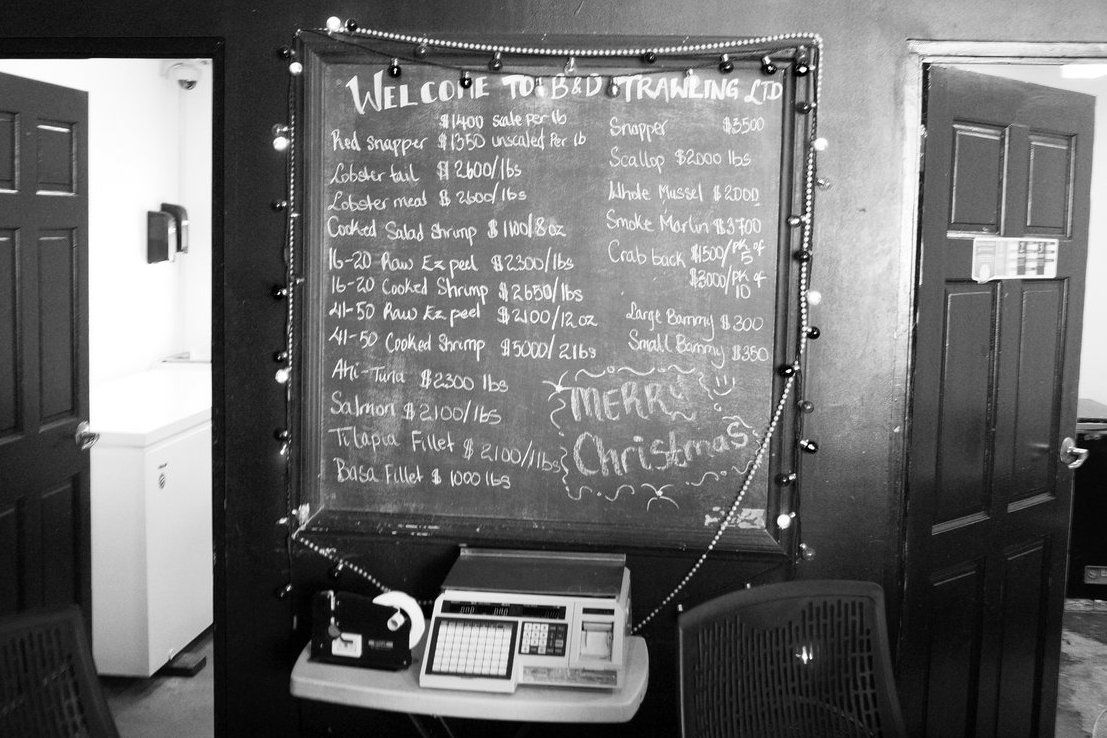 WELCOME TO B&D TRAWLING LTD
$1400 scale Per lb
Red snapper $1350 unscaled Per lb
Lobster tail $2600/lbs
Lobster meat $2600/lbs
Cooked Salad shrimp $1100/8oz
16-20 Raw Ez peel $2300/lbs
16-20 Cooked Shrimp $2650/lbs
41-50 Raw Ez peel $2100/12oz
41-50 Cooked Shrimp $5000/2lbs
Ahi-Tuna $2300 lbs
Salmon $2100/lbs
Tilapia Fillet $2,100/1lbs
Basa Fillet $1000 lbs
Snapper $3500
Scallop $2000 lbs
Whole Mussel $2000
Smoke Marlin $3700
Crab back $1500/PK of 5
$3000/PK of 10
Large Bammy $300
Small Bammy $350
MERRY
Christmas